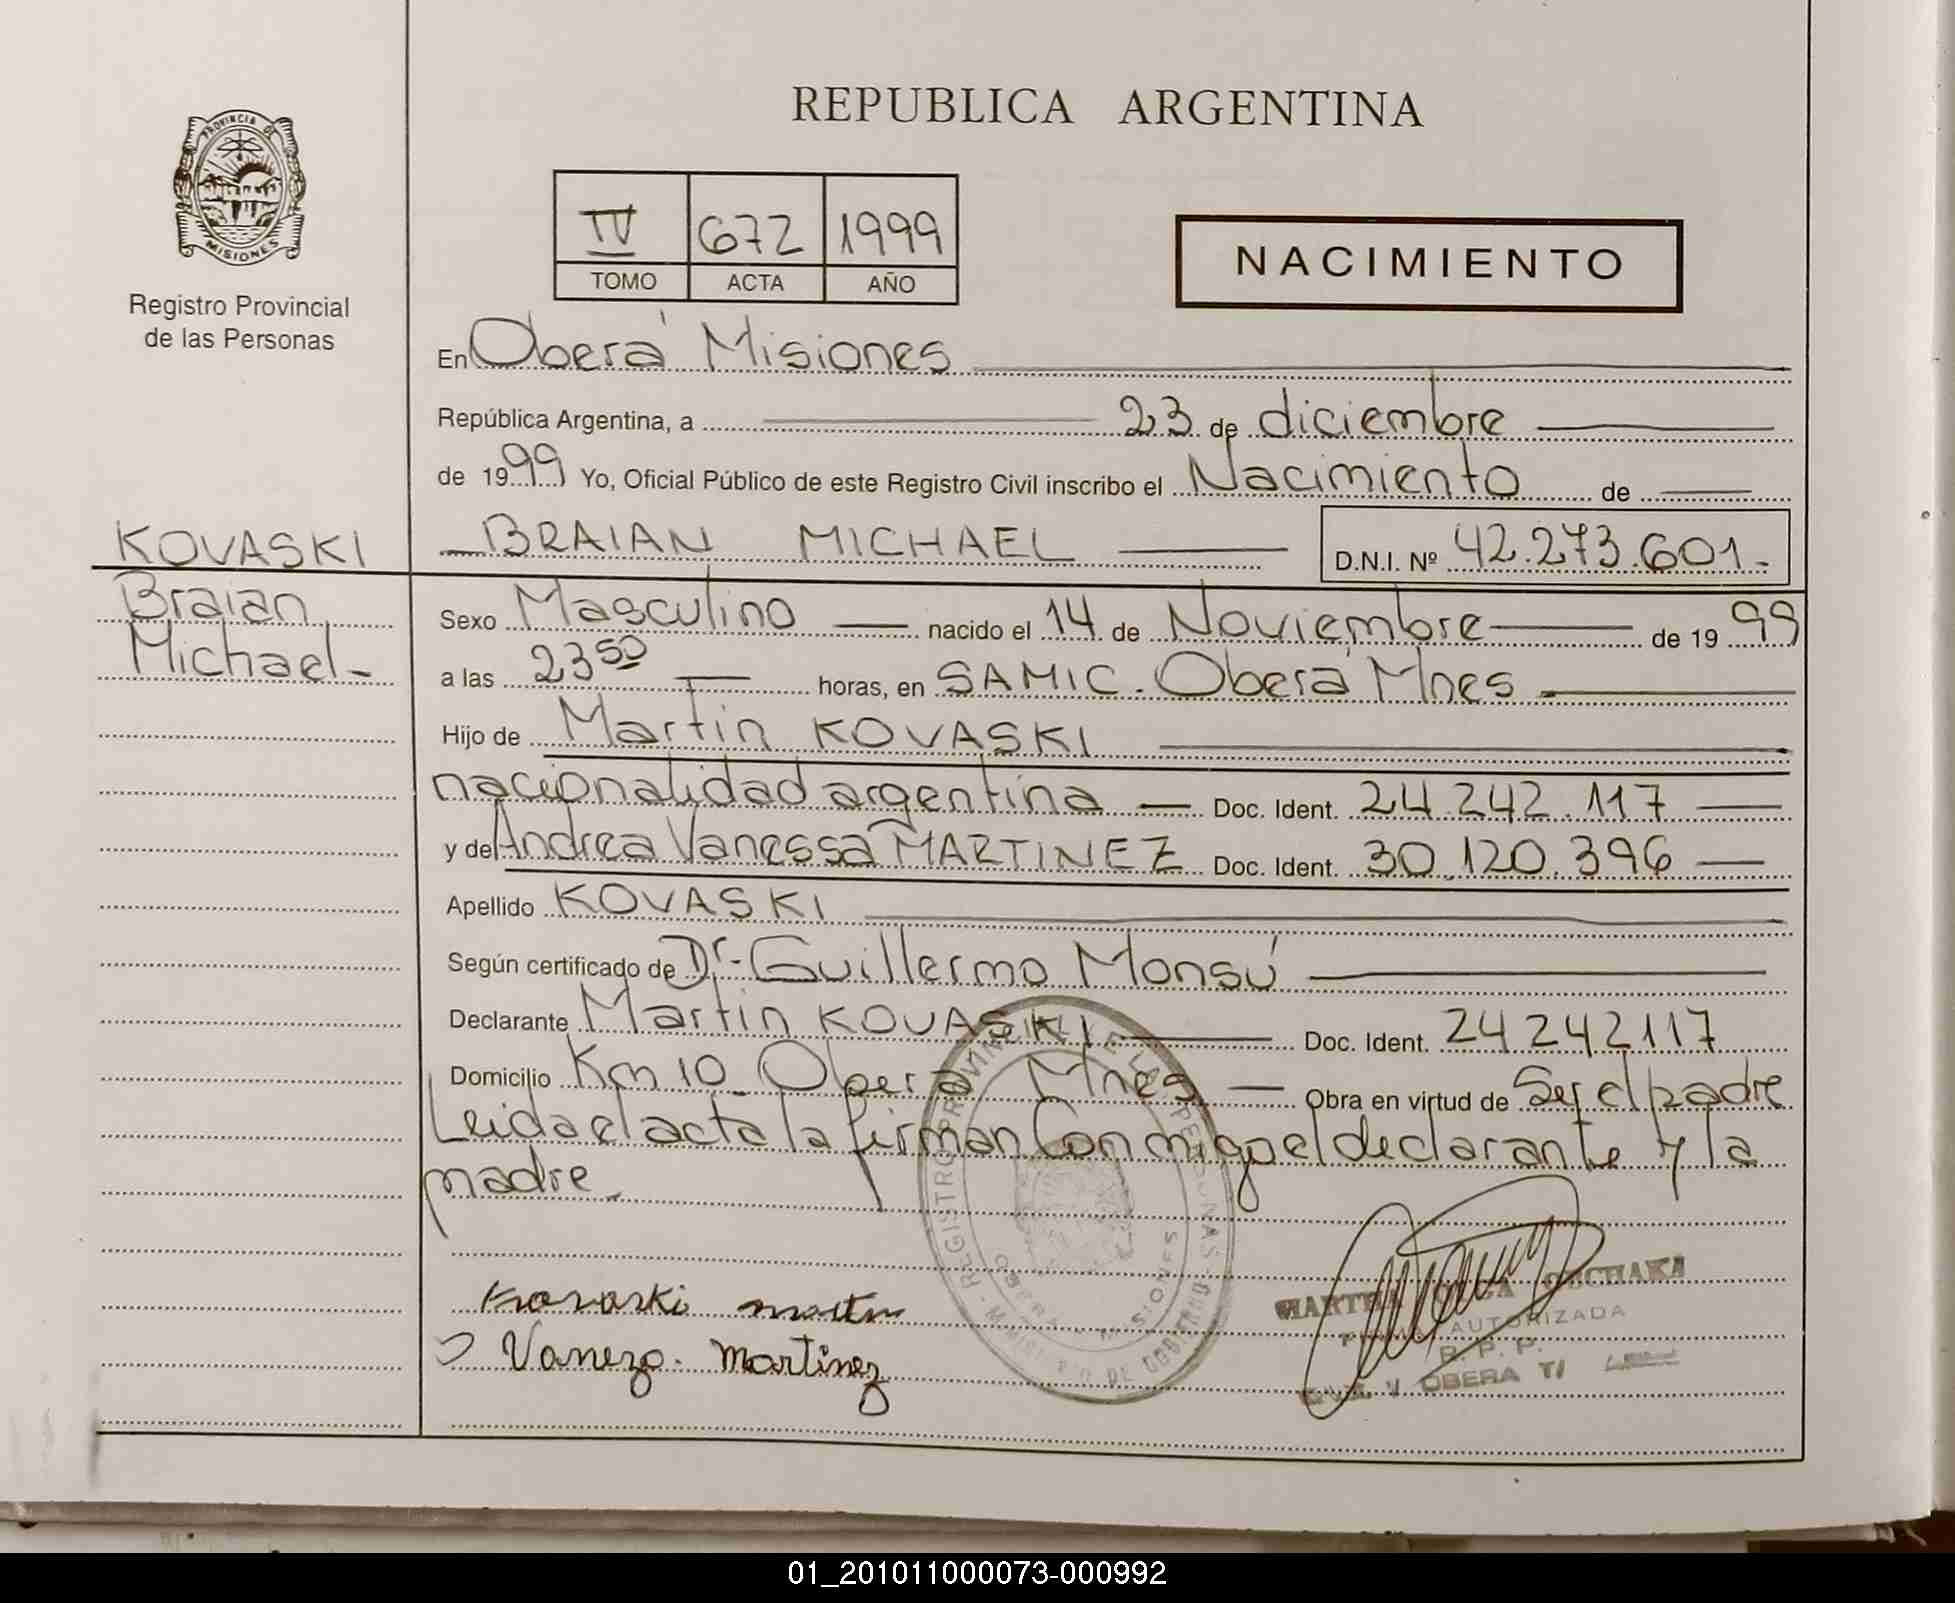 REPUBLICA ARGENTINA
PROVINCIA DE
MISIONES
Registro Provincial
de las Personas
IV 672 1999
TOMO ACTA AÑO
NACIMIENTO
En Oberá Misiones
República Argentina, a 23 de diciembre
de 1999 Yo, Oficial Público de este Registro Civil inscribo el Nacimiento de
KOVASKI
Braian
Michael
BRAIAN MICHAEL D.N.I. Nº 42.273.601.
Sexo Masculino nacido el 14 de Noviembre de 1999
a las 23 50 horas, en SAMIC. Oberá Mnes
Hijo de Martin KOVASKI
nacionalidad argentina Doc. Ident. 24.242.117
y de Andrea Vanessa MARTINEZ Doc. Ident. 30.120.396
Apellido KOVASKI
Según certificado de Dr. Guillermo Monsú
Declarante Martin KOVASKI Doc. Ident. 24242117
Domicilio Km 10 Oberá Mnes Obra en virtud de Ser el padre
Leida el acta la firman Conmigo el declarante y la
madre.
REGISTRO PROVINCIAL DE LAS PERSONAS
MINISTERIO DE GOBIERNO
OBERA MISIONES
Kovaski martin
Vaneza. Martinez
MARTHA
FIRMA AUTORIZADA
R. P. P.
OBERA
01_201011000073-000992